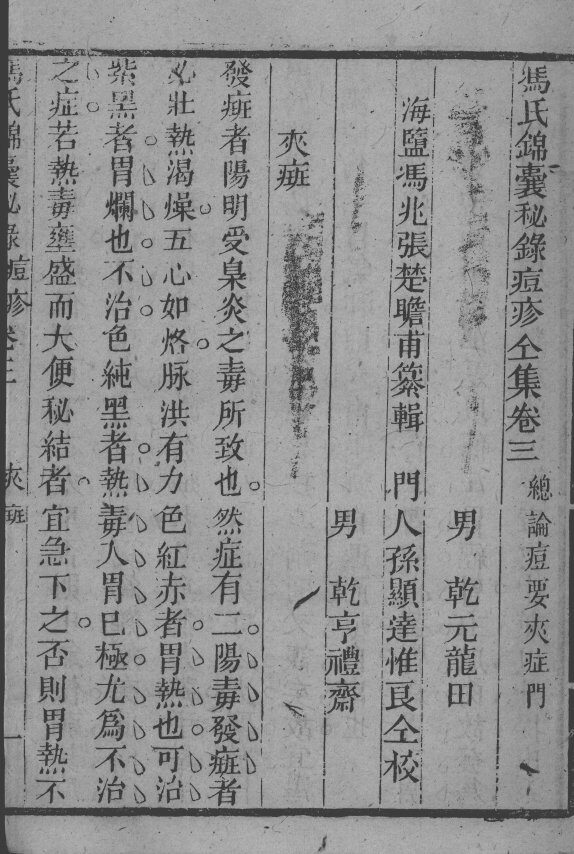 馮氏錦囊秘錄痘疹仝集卷三
總論痘要夾症門
男 乾元龍田
海鹽馮兆張楚瞻甫纂輯 門人孫顯達惟良仝校
男 乾亨禮齋
夾癍
發癍者陽明受臬炎之毒所致也然症有二陽毒發癍者
必壯熱渴燥五心如烙脉洪有力色紅赤者胃熱也可治
紫黑者胃爛也不治色純黑者熱毒入胃巳極尤爲不治
之症若熱毒壅盛而大便秘結者宜急下之否則胃熱不
馮氏錦囊秘錄痘疹卷三 夾癍 一